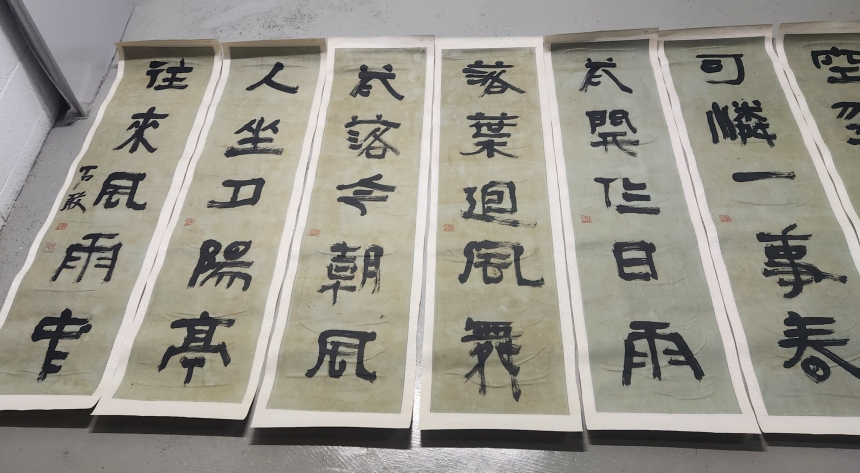 空
可憐一事春
花開昨日雨
落葉迴風舞
花落今朝風
人坐夕陽亭
往來風雨中